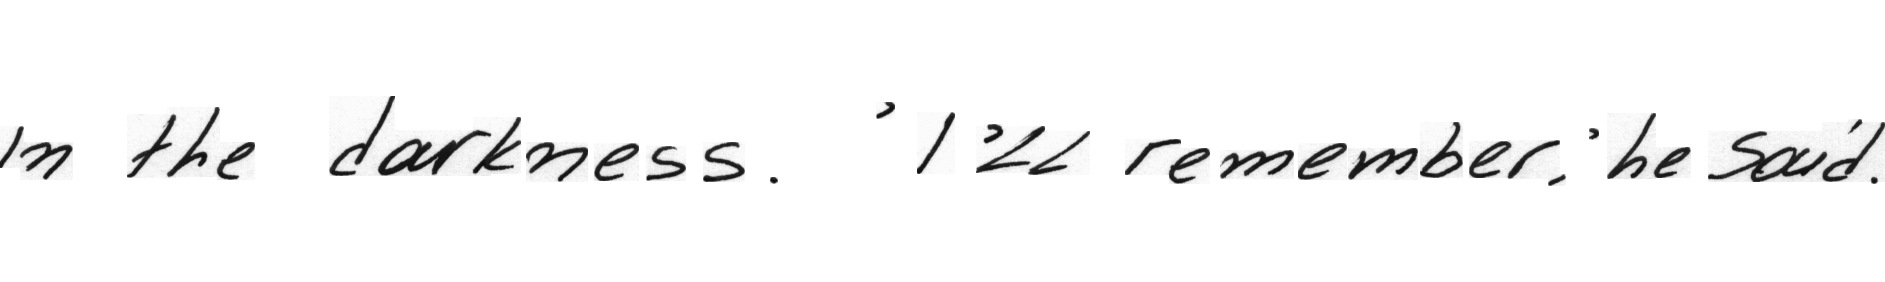 in the darkness. 'I'll remember,' he said.